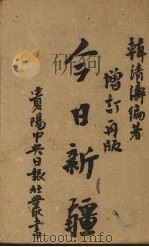 韓清濤編著
增訂再版
今日新疆
貴陽中央日報社叢書